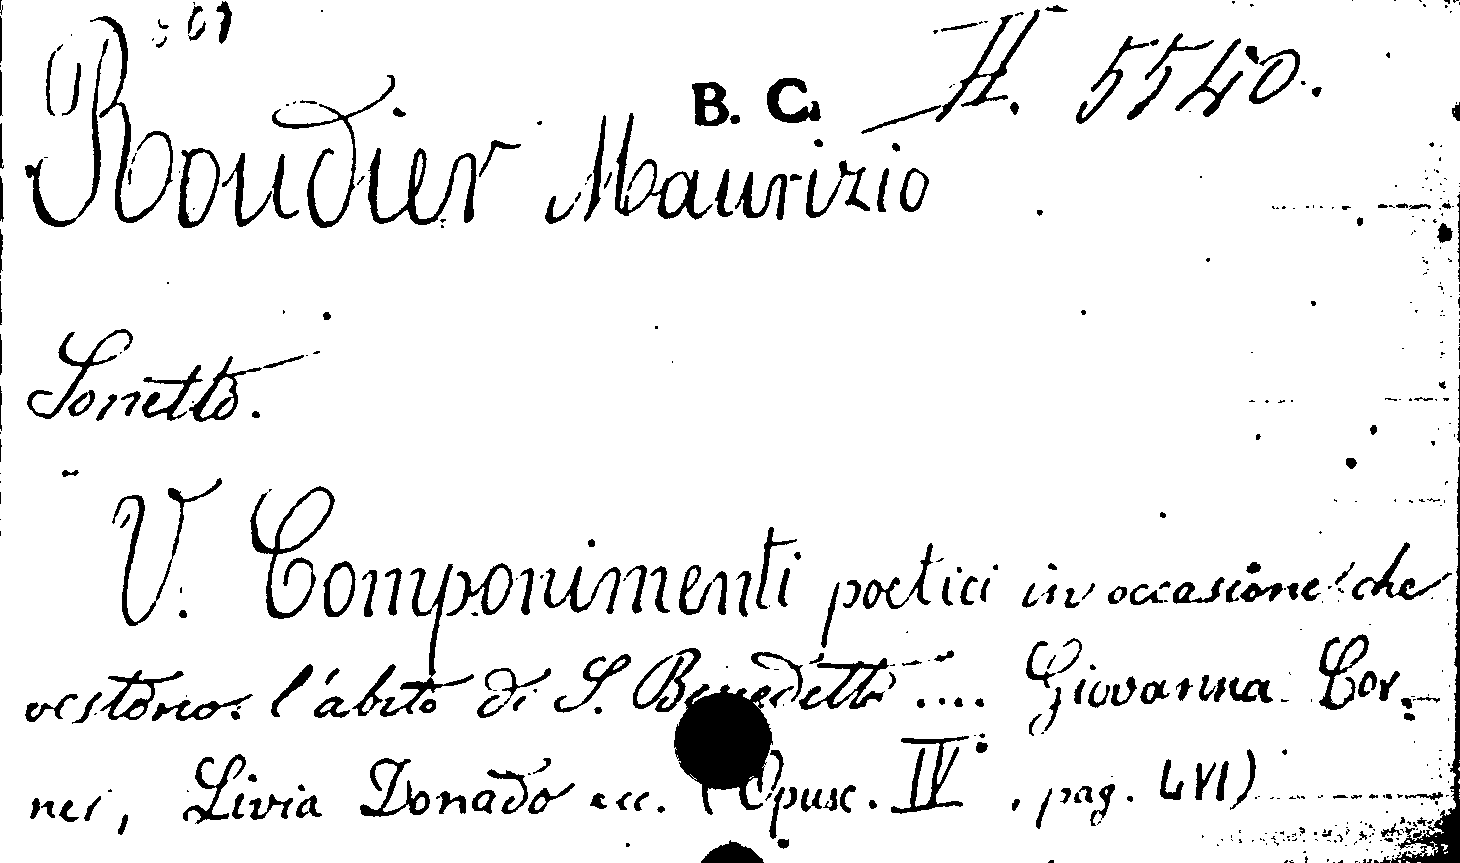 B. C. H. 5540.
Roudier Maurizio
Sonetto.
V. Componimenti poetici in occasione che
vestono l'abito di S. Benedetto .... Giovanna Cor-
ner, Livia Donado ecc. (Opusc. IV, pag. LVI)